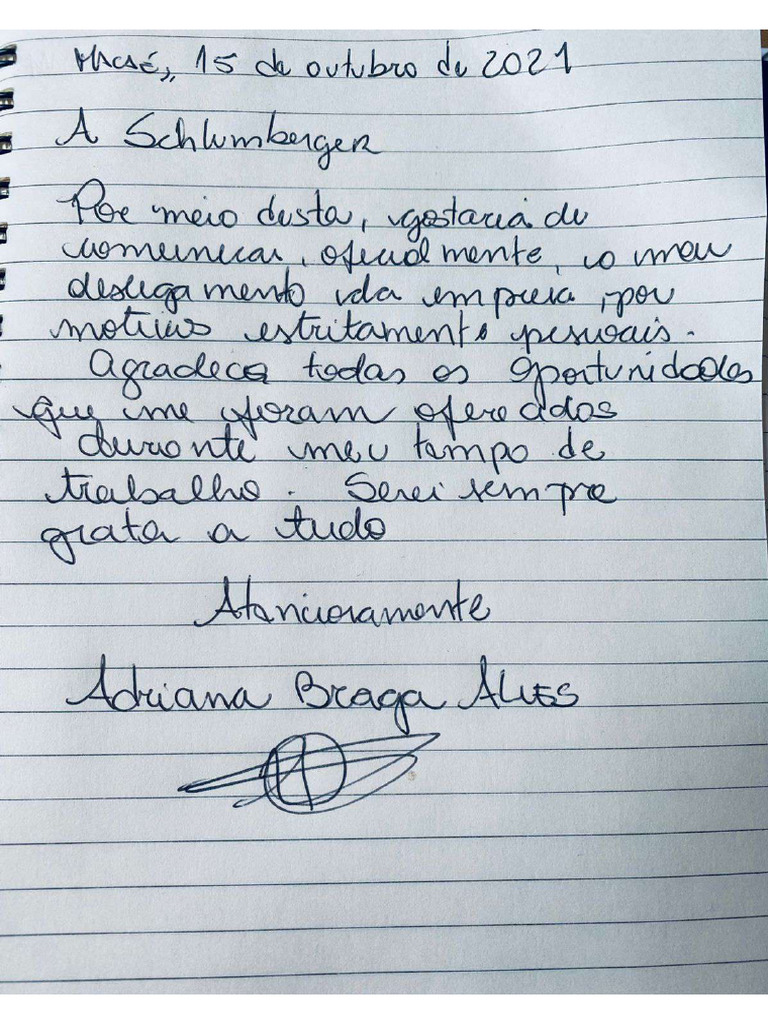 Macaé, 15 de outubro de 2021
A Schlumberger
Por meio desta, gostaria de
comunicar, oficialmente, o meu
desligamento da empresa, por
motivos estritamente pessoais.
Agradeço todas as oportunidades
que me foram oferecidas
durante meu tempo de
trabalho. Serei sempre
grata a tudo
Atenciosamente
Adriana Braga Alves